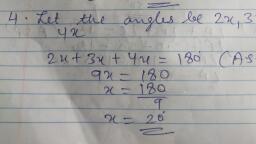 4. Let the angles be 2x, 3
4x
2x + 3x + 4x = 180° (As
9x = 180
x = 180
9
x = 20°